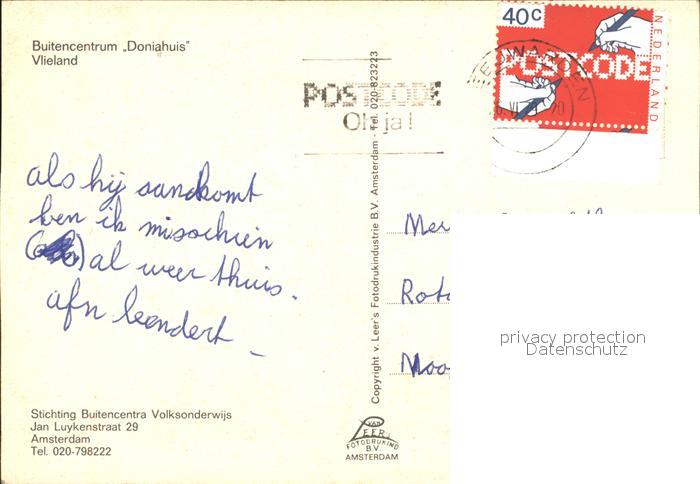 Buitencentrum „Doniahuis”
Vlieland
als hij aankomt
ben ik misschien
al weer thuis.
afn leendert
Stichting Buitencentra Volksonderwijs
Jan Luykenstraat 29
Amsterdam
Tel. 020-798222
POSTCODE
Oh ja!
Copyright v. Leer's Fotodrukindustrie B.V. Amsterdam - Tel. 020-823223
VAN
LEER
FOTODRUKIND
B.V.
AMSTERDAM
40c
POSTCODE
NEDERLAND
Mer
Roto
privacy protection
Datenschutz